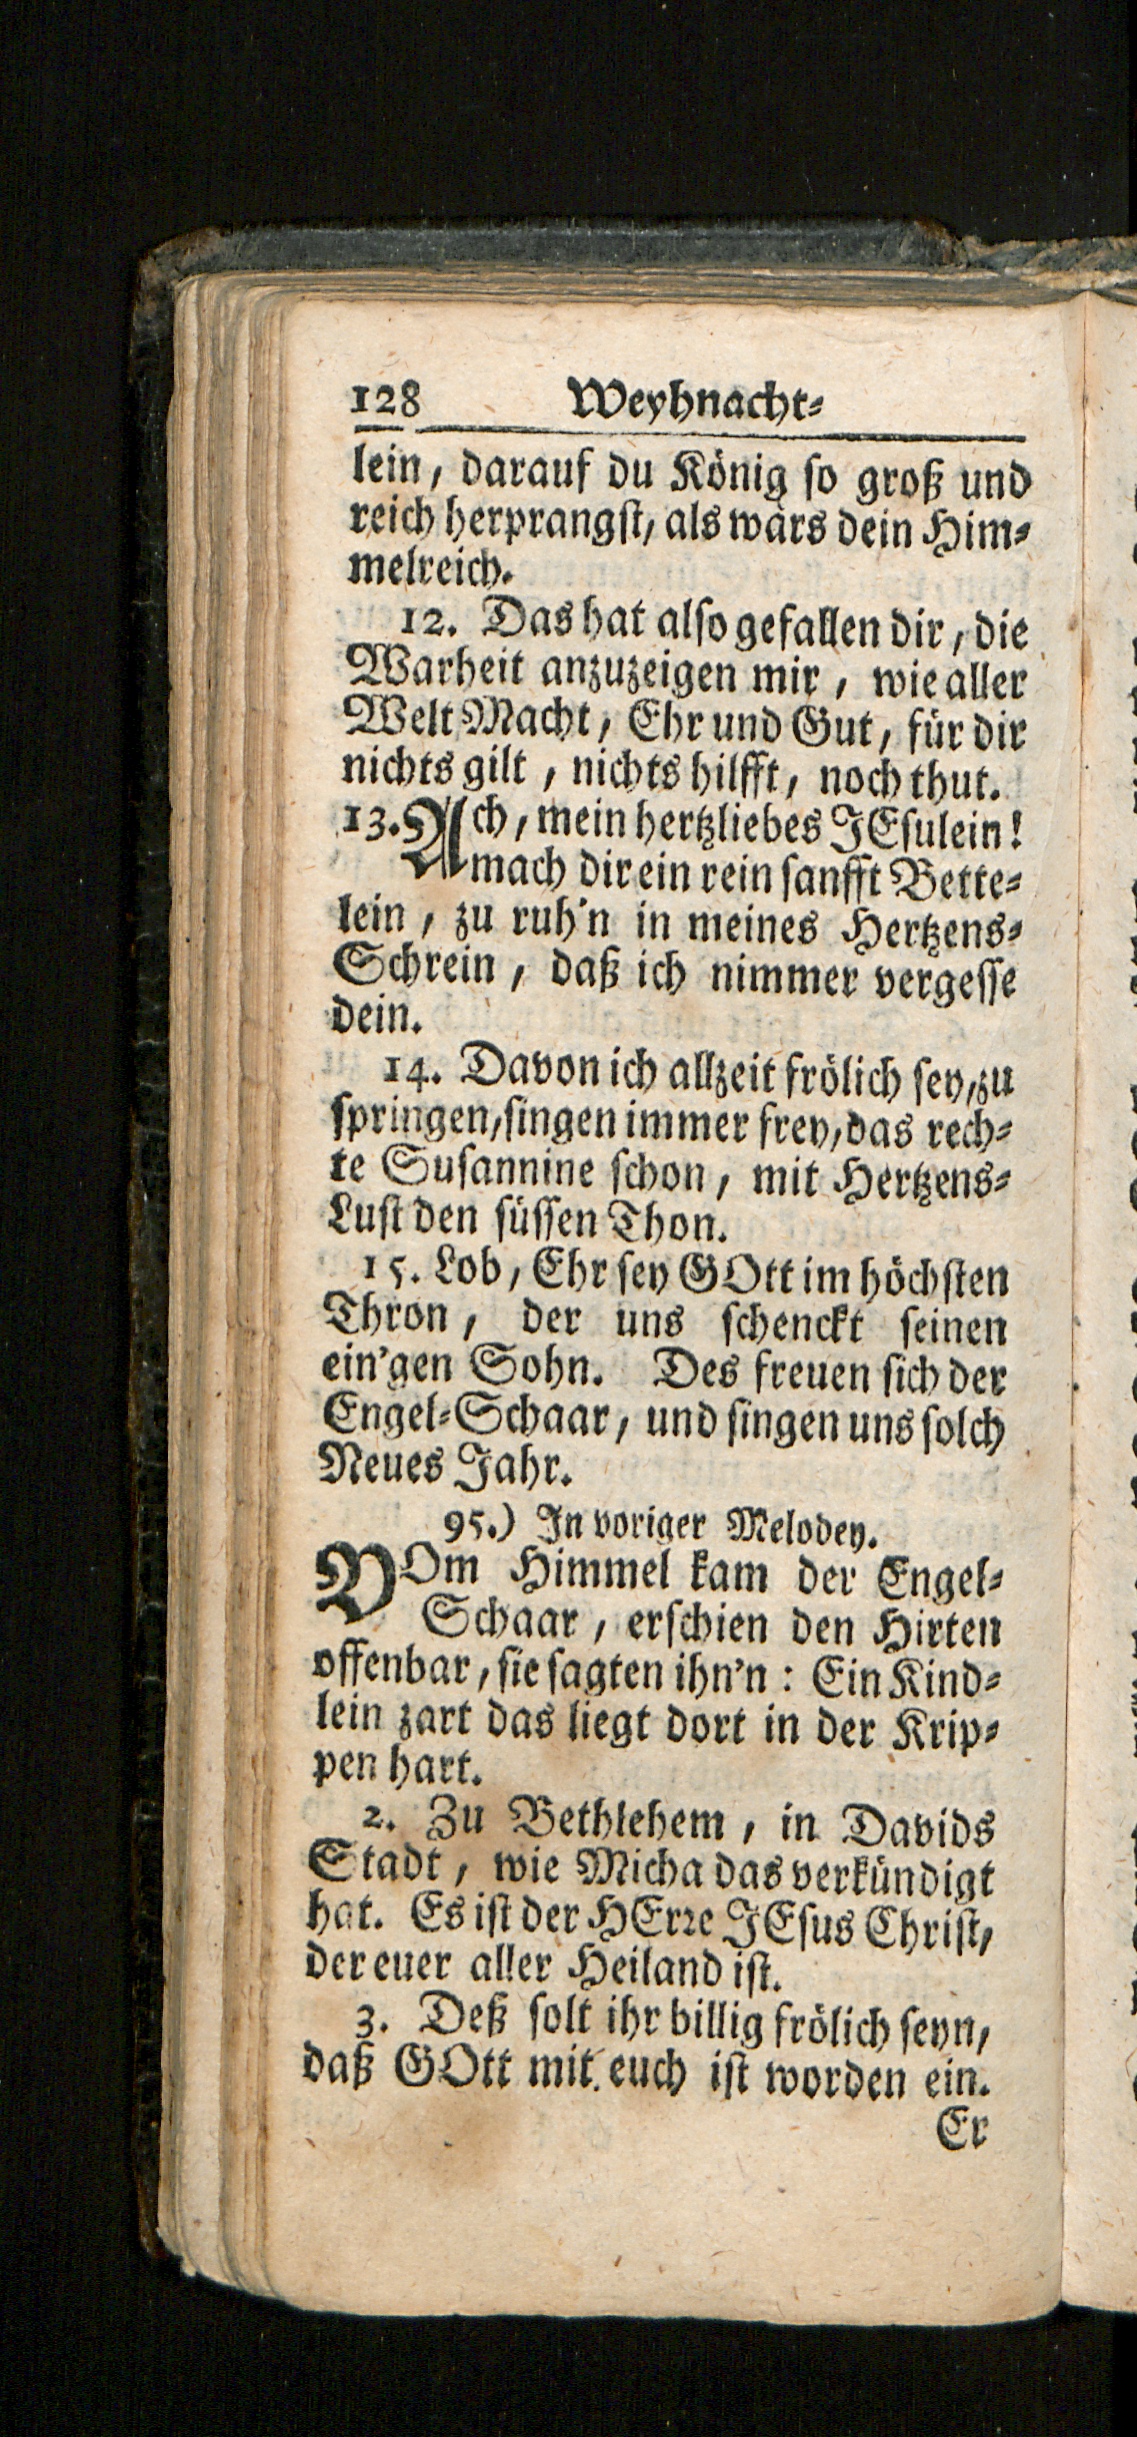 128 Weyhnacht⸗
lein, darauf du König ſo groß und
reich herprangſt, als wärs dein Him⸗
melreich.
12. Das hat alſo gefallen dir, die
Warheit anzuzeigen mir, wie aller
Welt Macht, Ehr und Gut, für dir
nichts gilt, nichts hilfft, noch thut.
13. Ach, mein hertzliebes JEſulein!
mach dir ein rein ſanfft Bette⸗
lein, zu ruh'n in meines Hertzens⸗
Schrein, daß ich nimmer vergeſſe
dein.
14. Davon ich allzeit frölich ſey, zu
ſpringen, ſingen immer frey, das rech⸗
te Suſannine ſchon, mit Hertzens⸗
Luſt den ſüſſen Thon.
15. Lob, Ehr ſey GOtt im höchſten
Thron, der uns ſchenckt ſeinen
ein'gen Sohn. Des freuen ſich der
Engel⸗Schaar, und ſingen uns ſolch
Neues Jahr.
95.) In voriger Melodey.
VOm Himmel kam der Engel⸗
Schaar, erſchien den Hirten
offenbar, ſie ſagten ihn'n: Ein Kind⸗
lein zart das liegt dort in der Krip⸗
pen hart.
2. Zu Bethlehem, in Davids
Stadt, wie Micha das verkündigt
hat. Es iſt der HErꝛe JEſus Chriſt,
der euer aller Heiland iſt.
3. Deß ſolt ihr billig frölich ſeyn,
daß GOtt mit euch iſt worden ein.
Er